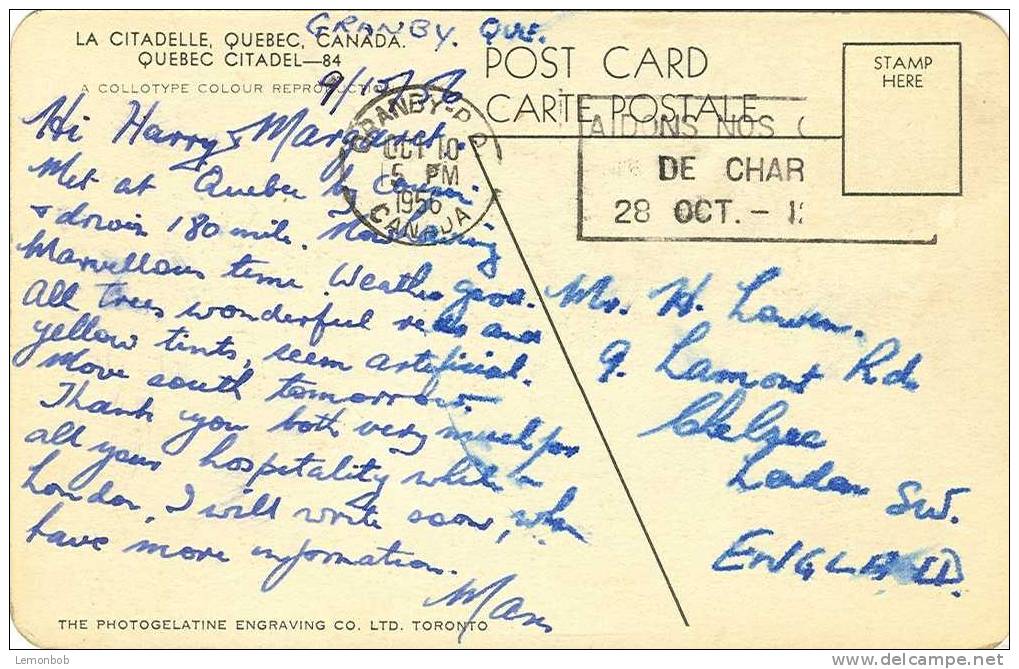 GRANBY. QUE.
LA CITADELLE, QUEBEC, CANADA.
QUEBEC CITADEL—84
A COLLOTYPE COLOUR REPRODUCTION
POST CARD
CARTE POSTALE
STAMP
HERE
GRANBY-P.Q.
OCT 10
5 PM
1956
CANADA
AIDONS NOS
DE CHAR
28 OCT. - 1
Hi Harry & Margaret.
Met at Quebec by
& drove 180 mile. Now having
Marvellous time. Weather good.
All trees wonderful reds and
yellow tints, seem artificial.
Move south tomorrow.
Thank you both very much for
all your hospitality while in
London, I will write soon, when
have more information.
Mr. H.
9. Lamont Rd.
Chelsea
London SW.
ENGLAND.
THE PHOTOGELATINE ENGRAVING CO. LTD. TORONTO
Lemonbob
www.delcampe.net